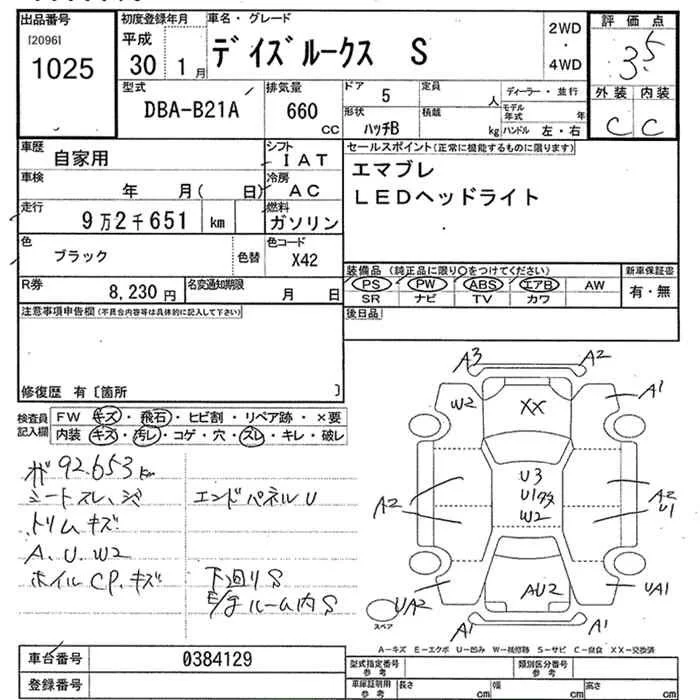 出品番号
[2096]
1025
初度登録年月
平成
30 1月
車名・グレード
デイズルークス S
2WD
・
4WD
評価点
3.5
外装 内装
C C
型式
DBA-B21A
排気量
660
cc
ドア
5
定員
人
ディーラー・並行
形状
ハッチB
積載
kg
モデル年式 年
ハンドル 左・右
車歴
自家用
シフト
IAT
車検
年 月( 日)
冷房
AC
走行
9万2千651 km
燃料
ガソリン
色
ブラック
色替
色コード
X42
R券
8,230 円
名変通知期限
月 日
セールスポイント(正常に機能するものに限ります)
エマブレ
LEDヘッドライト
装備品 (純正品に限り○をつけてください)
新車保証書
PS PW ABS エアB AW
SR ナビ TV カワ
有・無
後日品
注意事項申告欄(不具合内容等は具体的に記入して下さい)
修復歴 有〔箇所 〕
検査員
記入欄
FW キズ・飛石・ヒビ割・リペア跡・×要
内装 キズ・汚レ・コゲ・穴・スレ・キレ・破レ
92.653 km
シートスレ、シミ
エンドパネルU
トリムキズ
A、U、W2
ホイルCP、キズ
下回りS
E/gルーム内S
A3 A2
W2 XX A1
U3
U1
W2
A2
A2
U1
UA2 AU2 UA1
A1 A1
スペア
A-キズ E-エクボ U-凹み W-補修跡 S-サビ C-腐食 XX-交換済
車台番号
0384129
登録番号
型式指定番号
参考
類別区分番号
参考
車庫証明用
参考
長さ cm
幅 cm
高さ cm